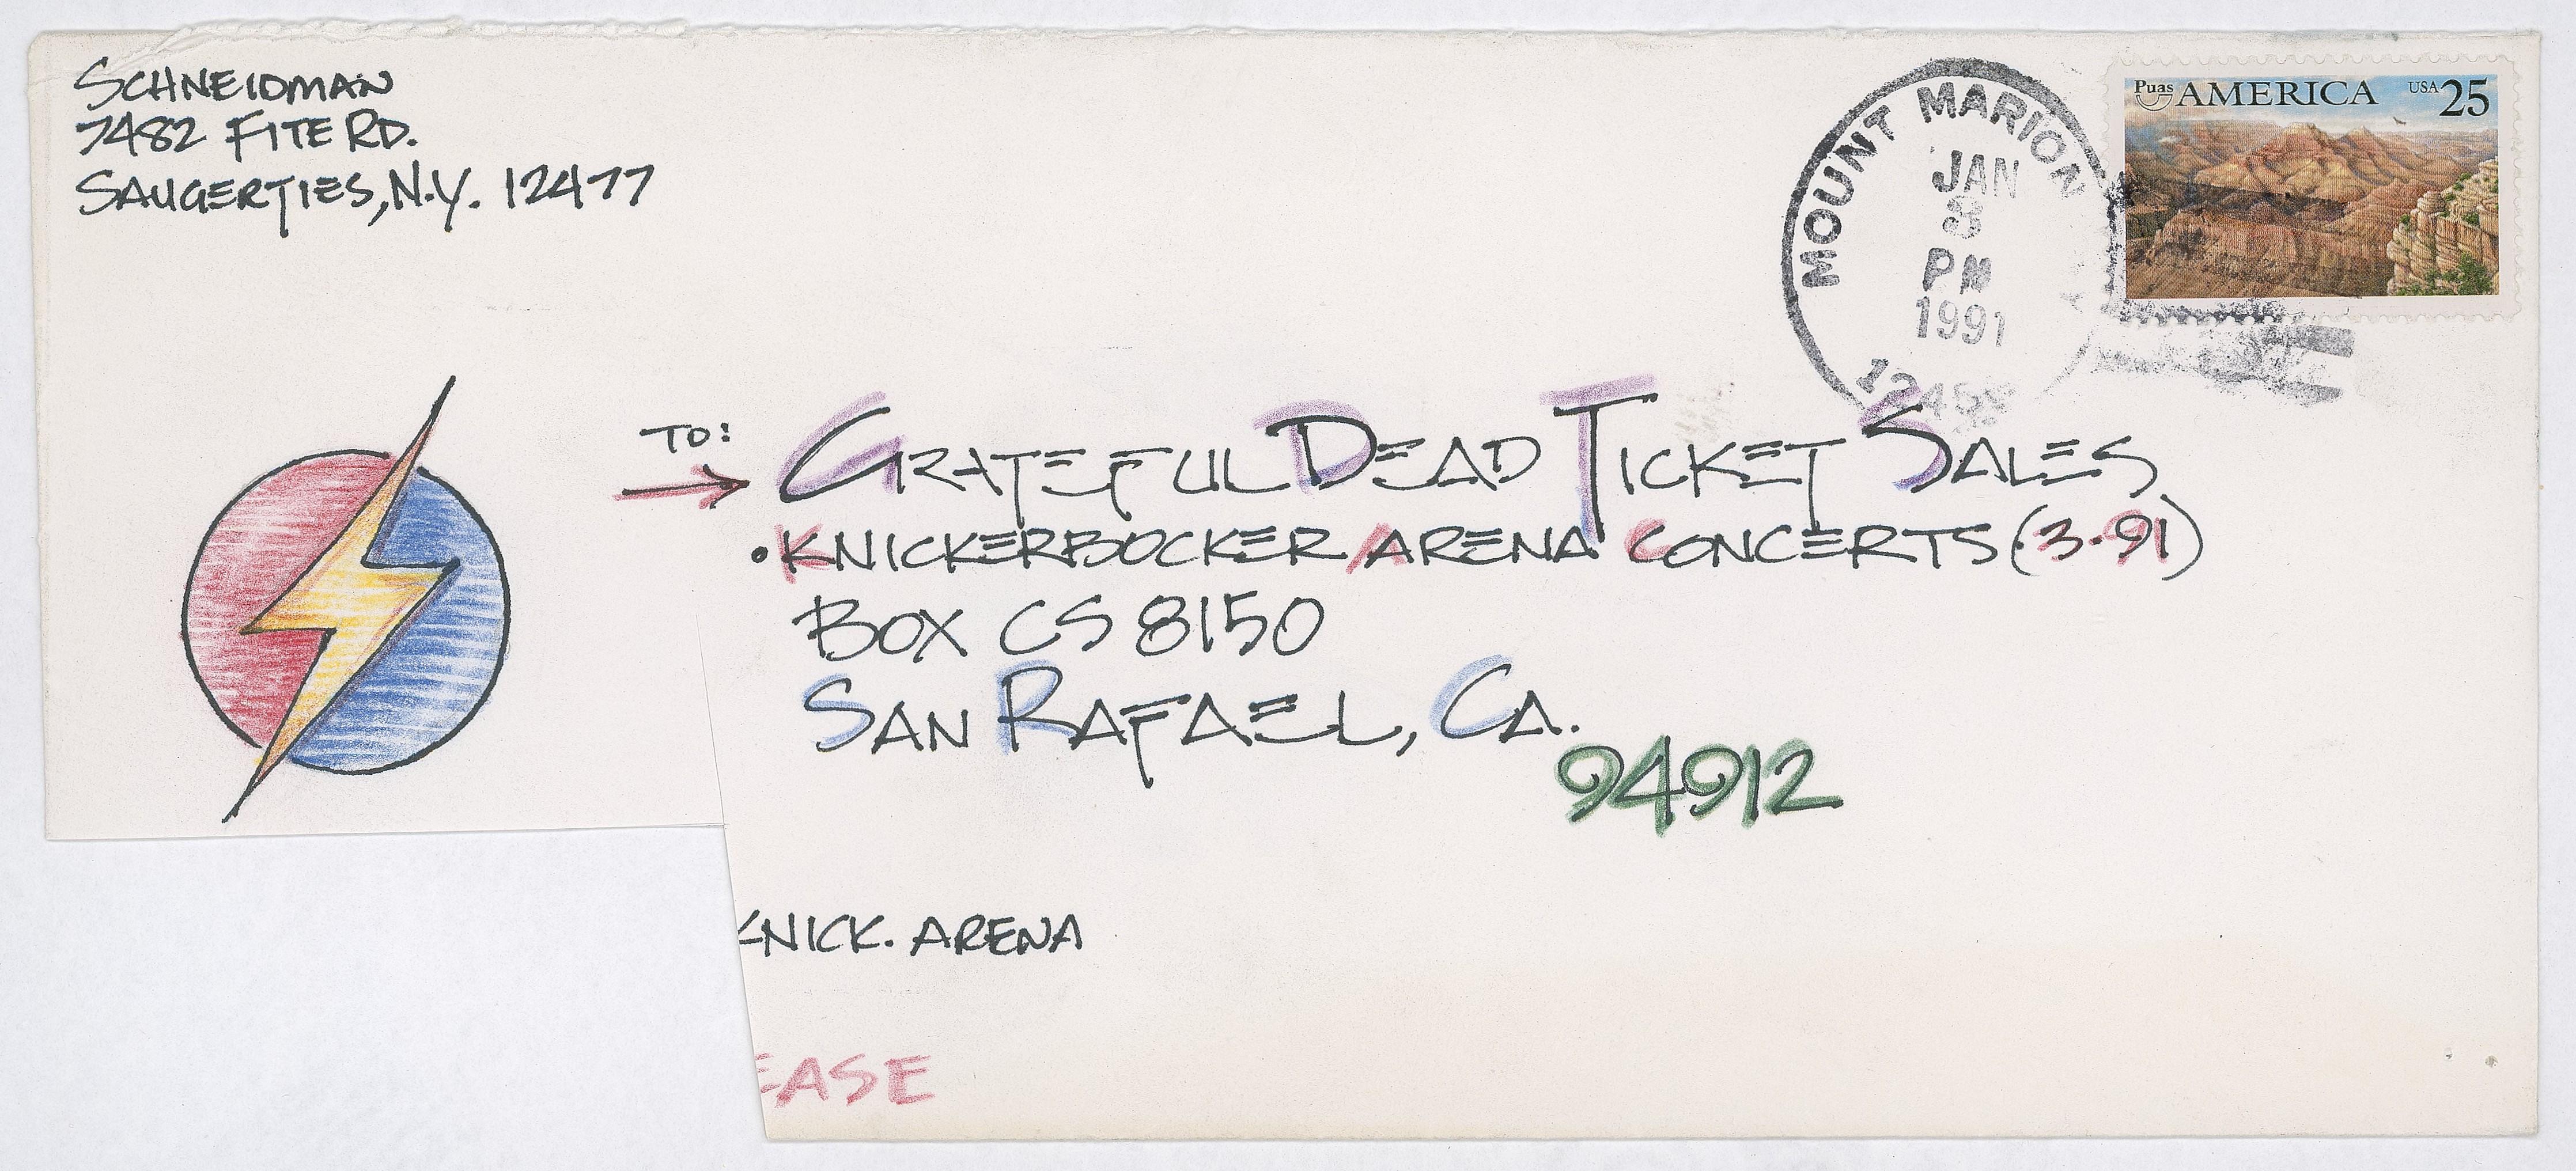 SCHNEIDMAN
7482 FITE RD.
SAUGERTIES, N.Y. 12477
MOUNT MARION
JAN
PM
1991
Puas AMERICA USA 25
TO:
GRATEFUL DEAD TICKET SALES
• KNICKERBOCKER ARENA CONCERTS (3·91)
BOX CS 8150
SAN RAFAEL, CA.
94912
KNICK. ARENA
EASE